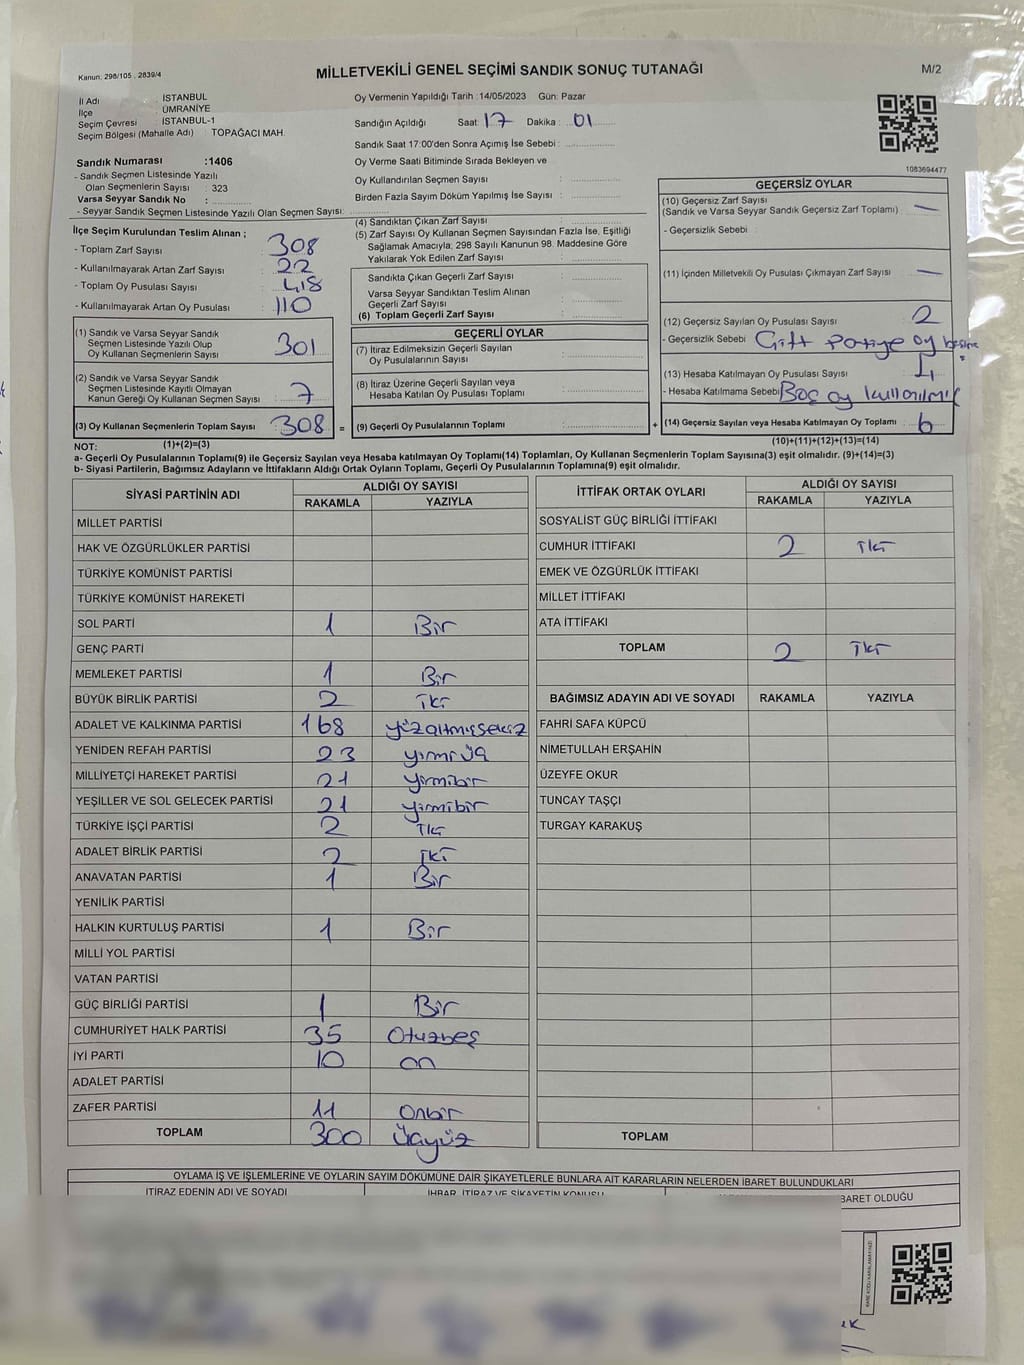 Kanun: 298/105 , 2839/4
MİLLETVEKİLİ GENEL SEÇİMİ SANDIK SONUÇ TUTANAĞI
M/2
İl Adı : İSTANBUL
İlçe : ÜMRANİYE
Seçim Çevresi : İSTANBUL-1
Seçim Bölgesi (Mahalle Adı) : TOPAĞACI MAH.
Sandık Numarası :1406
- Sandık Seçmen Listesinde Yazılı
Olan Seçmenlerin Sayısı : 323
Varsa Seyyar Sandık No :
- Seyyar Sandık Seçmen Listesinde Yazılı Olan Seçmen Sayısı:
Oy Vermenin Yapıldığı Tarih :14/05/2023 Gün: Pazar
Sandığın Açıldığı Saat: 17 Dakika : 01
Sandık Saat 17:00'den Sonra Açımış İse Sebebi :
Oy Verme Saati Bitiminde Sırada Bekleyen ve
Oy Kullandırılan Seçmen Sayısı :
Birden Fazla Sayım Döküm Yapılmış İse Sayısı :
1083694477
İlçe Seçim Kurulundan Teslim Alınan ;
- Toplam Zarf Sayısı : 308
- Kullanılmayarak Artan Zarf Sayısı : 22
- Toplam Oy Pusulası Sayısı : 418
- Kullanılmayarak Artan Oy Pusulası : 110
(1) Sandık ve Varsa Seyyar Sandık
Seçmen Listesinde Yazılı Olup
Oy Kullanan Seçmenlerin Sayısı : 301
(2) Sandık ve Varsa Seyyar Sandık
Seçmen Listesinde Kayıtlı Olmayan
Kanun Gereği Oy Kullanan Seçmen Sayısı : 7
(3) Oy Kullanan Seçmenlerin Toplam Sayısı : 308 =
(4) Sandıktan Çıkan Zarf Sayısı :
(5) Zarf Sayısı Oy Kullanan Seçmen Sayısından Fazla İse, Eşitliği
Sağlamak Amacıyla; 298 Sayılı Kanunun 98. Maddesine Göre
Yakılarak Yok Edilen Zarf Sayısı :
Sandıkta Çıkan Geçerli Zarf Sayısı :
Varsa Seyyar Sandıktan Teslim Alınan
Geçerli Zarf Sayısı :
(6) Toplam Geçerli Zarf Sayısı :
GEÇERLİ OYLAR
(7) İtiraz Edilmeksizin Geçerli Sayılan
Oy Pusulasının Sayısı :
(8) İtiraz Üzerine Geçerli Sayılan veya
Hesaba Katılan Oy Pusulası Toplamı :
(9) Geçerli Oy Pusulalarının Toplamı : +
GEÇERSİZ OYLAR
(10) Geçersiz Zarf Sayısı
(Sandık ve Varsa Seyyar Sandık Geçersiz Zarf Toplamı) : —
- Geçersizlik Sebebi :
(11) İçinden Milletvekili Oy Pusulası Çıkmayan Zarf Sayısı : —
(12) Geçersiz Sayılan Oy Pusulası Sayısı : 2
- Geçersizlik Sebebi : Çift partiye oy
(13) Hesaba Katılmayan Oy Pusulası Sayısı : 4
- Hesaba Katılmama Sebebi: Boş oy kullanılmış
(14) Geçersiz Sayılan veya Hesaba Katılmayan Oy Toplamı : 6
NOT: (1)+(2)=(3)
(10)+(11)+(12)+(13)=(14)
a- Geçerli Oy Pusulalarının Toplamı(9) ile Geçersiz veya Hesaba katılmayan Oy Toplamı(14) Toplamları, Oy Kullanan Seçmenlerin Toplam Sayısına(3) eşit olmalıdır. (9)+(14)=(3)
b- Siyasi Partilerin, Bağımsız Adayların ve İttifakların Aldığı Ortak Oyların Toplamı, Geçerli Oy Pusulalarının Toplamına(9) eşit olmalıdır.
SİYASİ PARTİNİN ADI ALDIĞI OY SAYISI
RAKAMLA YAZIYLA
MİLLET PARTİSİ
HAK VE ÖZGÜRLÜKLER PARTİSİ
TÜRKİYE KOMÜNİST PARTİSİ
TÜRKİYE KOMÜNİST HAREKETİ
SOL PARTİ 1 Bir
GENÇ PARTİ
MEMLEKET PARTİSİ 1 Bir
BÜYÜK BİRLİK PARTİSİ 2 İki
ADALET VE KALKINMA PARTİSİ 168 yüzaltmışsekiz
YENİDEN REFAH PARTİSİ 23 yirmiüç
MİLLİYETÇİ HAREKET PARTİSİ 21 yirmibir
YEŞİLLER VE SOL GELECEK PARTİSİ 21 yirmibir
TÜRKİYE İŞÇİ PARTİSİ 2 İki
ADALET BİRLİK PARTİSİ 2 İki
ANAVATAN PARTİSİ 1 Bir
YENİLİK PARTİSİ
HALKIN KURTULUŞ PARTİSİ 1 Bir
MİLLİ YOL PARTİSİ
VATAN PARTİSİ
GÜÇ BİRLİĞİ PARTİSİ 1 Bir
CUMHURİYET HALK PARTİSİ 35 Otuzbeş
İYİ PARTİ 10 on
ADALET PARTİSİ
ZAFER PARTİSİ 11 Onbir
TOPLAM 300 Üçyüz
İTTİFAK ORTAK OYLARI ALDIĞI OY SAYISI
RAKAMLA YAZIYLA
SOSYALİST GÜÇ BİRLİĞİ İTTİFAKI
CUMHUR İTTİFAKI 2 İki
EMEK VE ÖZGÜRLÜK İTTİFAKI
MİLLET İTTİFAKI
ATA İTTİFAKI
TOPLAM 2 İki
BAĞIMSIZ ADAYIN ADI VE SOYADI RAKAMLA YAZIYLA
FAHRİ SAFA KÜPCÜ
NİMETULLAH ERŞAHİN
ÜZEYFE OKUR
TUNCAY TAŞÇI
TURGAY KARAKUŞ
TOPLAM
OYLAMA İŞ VE İŞLEMLERİNE VE OYLARIN SAYIM DÖKÜMÜNE DAİR ŞİKAYETLERLE BUNLARA AİT KARARLARIN NELERDEN İBARET BULUNDUKLARI
İTİRAZ EDENİN ADI VE SOYADI İHBAR, İTİRAZ VE ŞİKAYETİN KONUSU BARET OLDUĞU